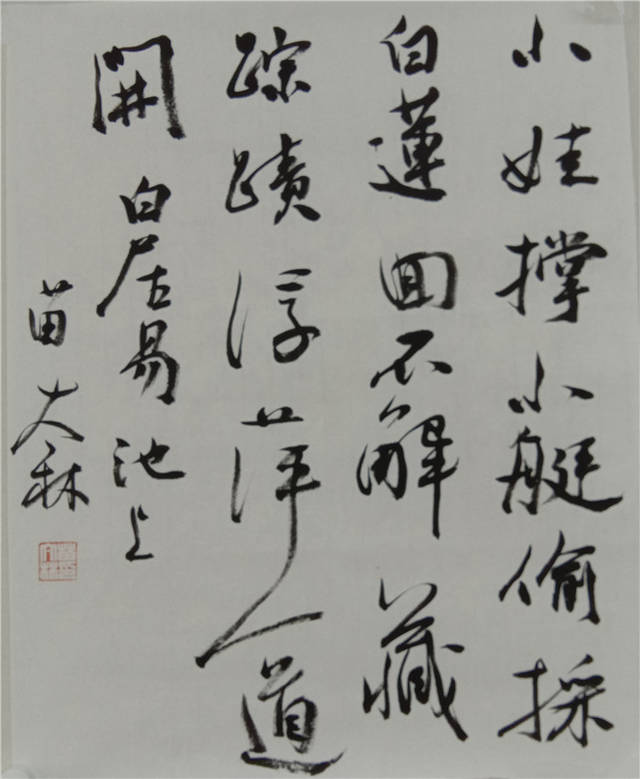 小娃撑小艇偷採
白蓮回不解藏
踪蹟浮萍一道
開 白居易池上
苗大林